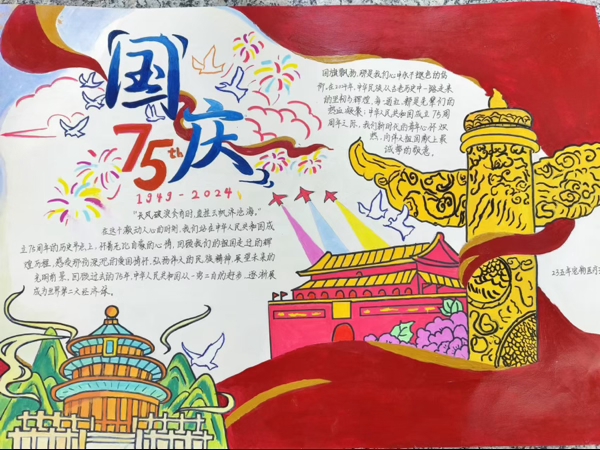 国庆
75th
1949-2024
"长风破浪会有时,直挂云帆济沧海。"
在这个激动人心的时刻,我们站在中华人民共和国成
立75周年的历史节点上,怀着无比自豪的心情,回顾我们的祖国走过的辉
煌历程,感受那份深沉的爱国情怀,弘扬伟大的民族精神,展望未来的
光明前景。回顾过去的75年,中华人民共和国从一穷二白的起步,逐渐发展
成为世界第二大经济体。
国旗飘扬,那是我们心中永不褪色的信
仰,在2024年,中华民族从古老历史中一路走来
的坚韧与辉煌,每一面红,都是先辈们的
热血凝聚;中华人民共和国成立75周
周年之际,我们新时代的青年心怀炽
热,向伟大祖国献上最
诚挚的敬意。